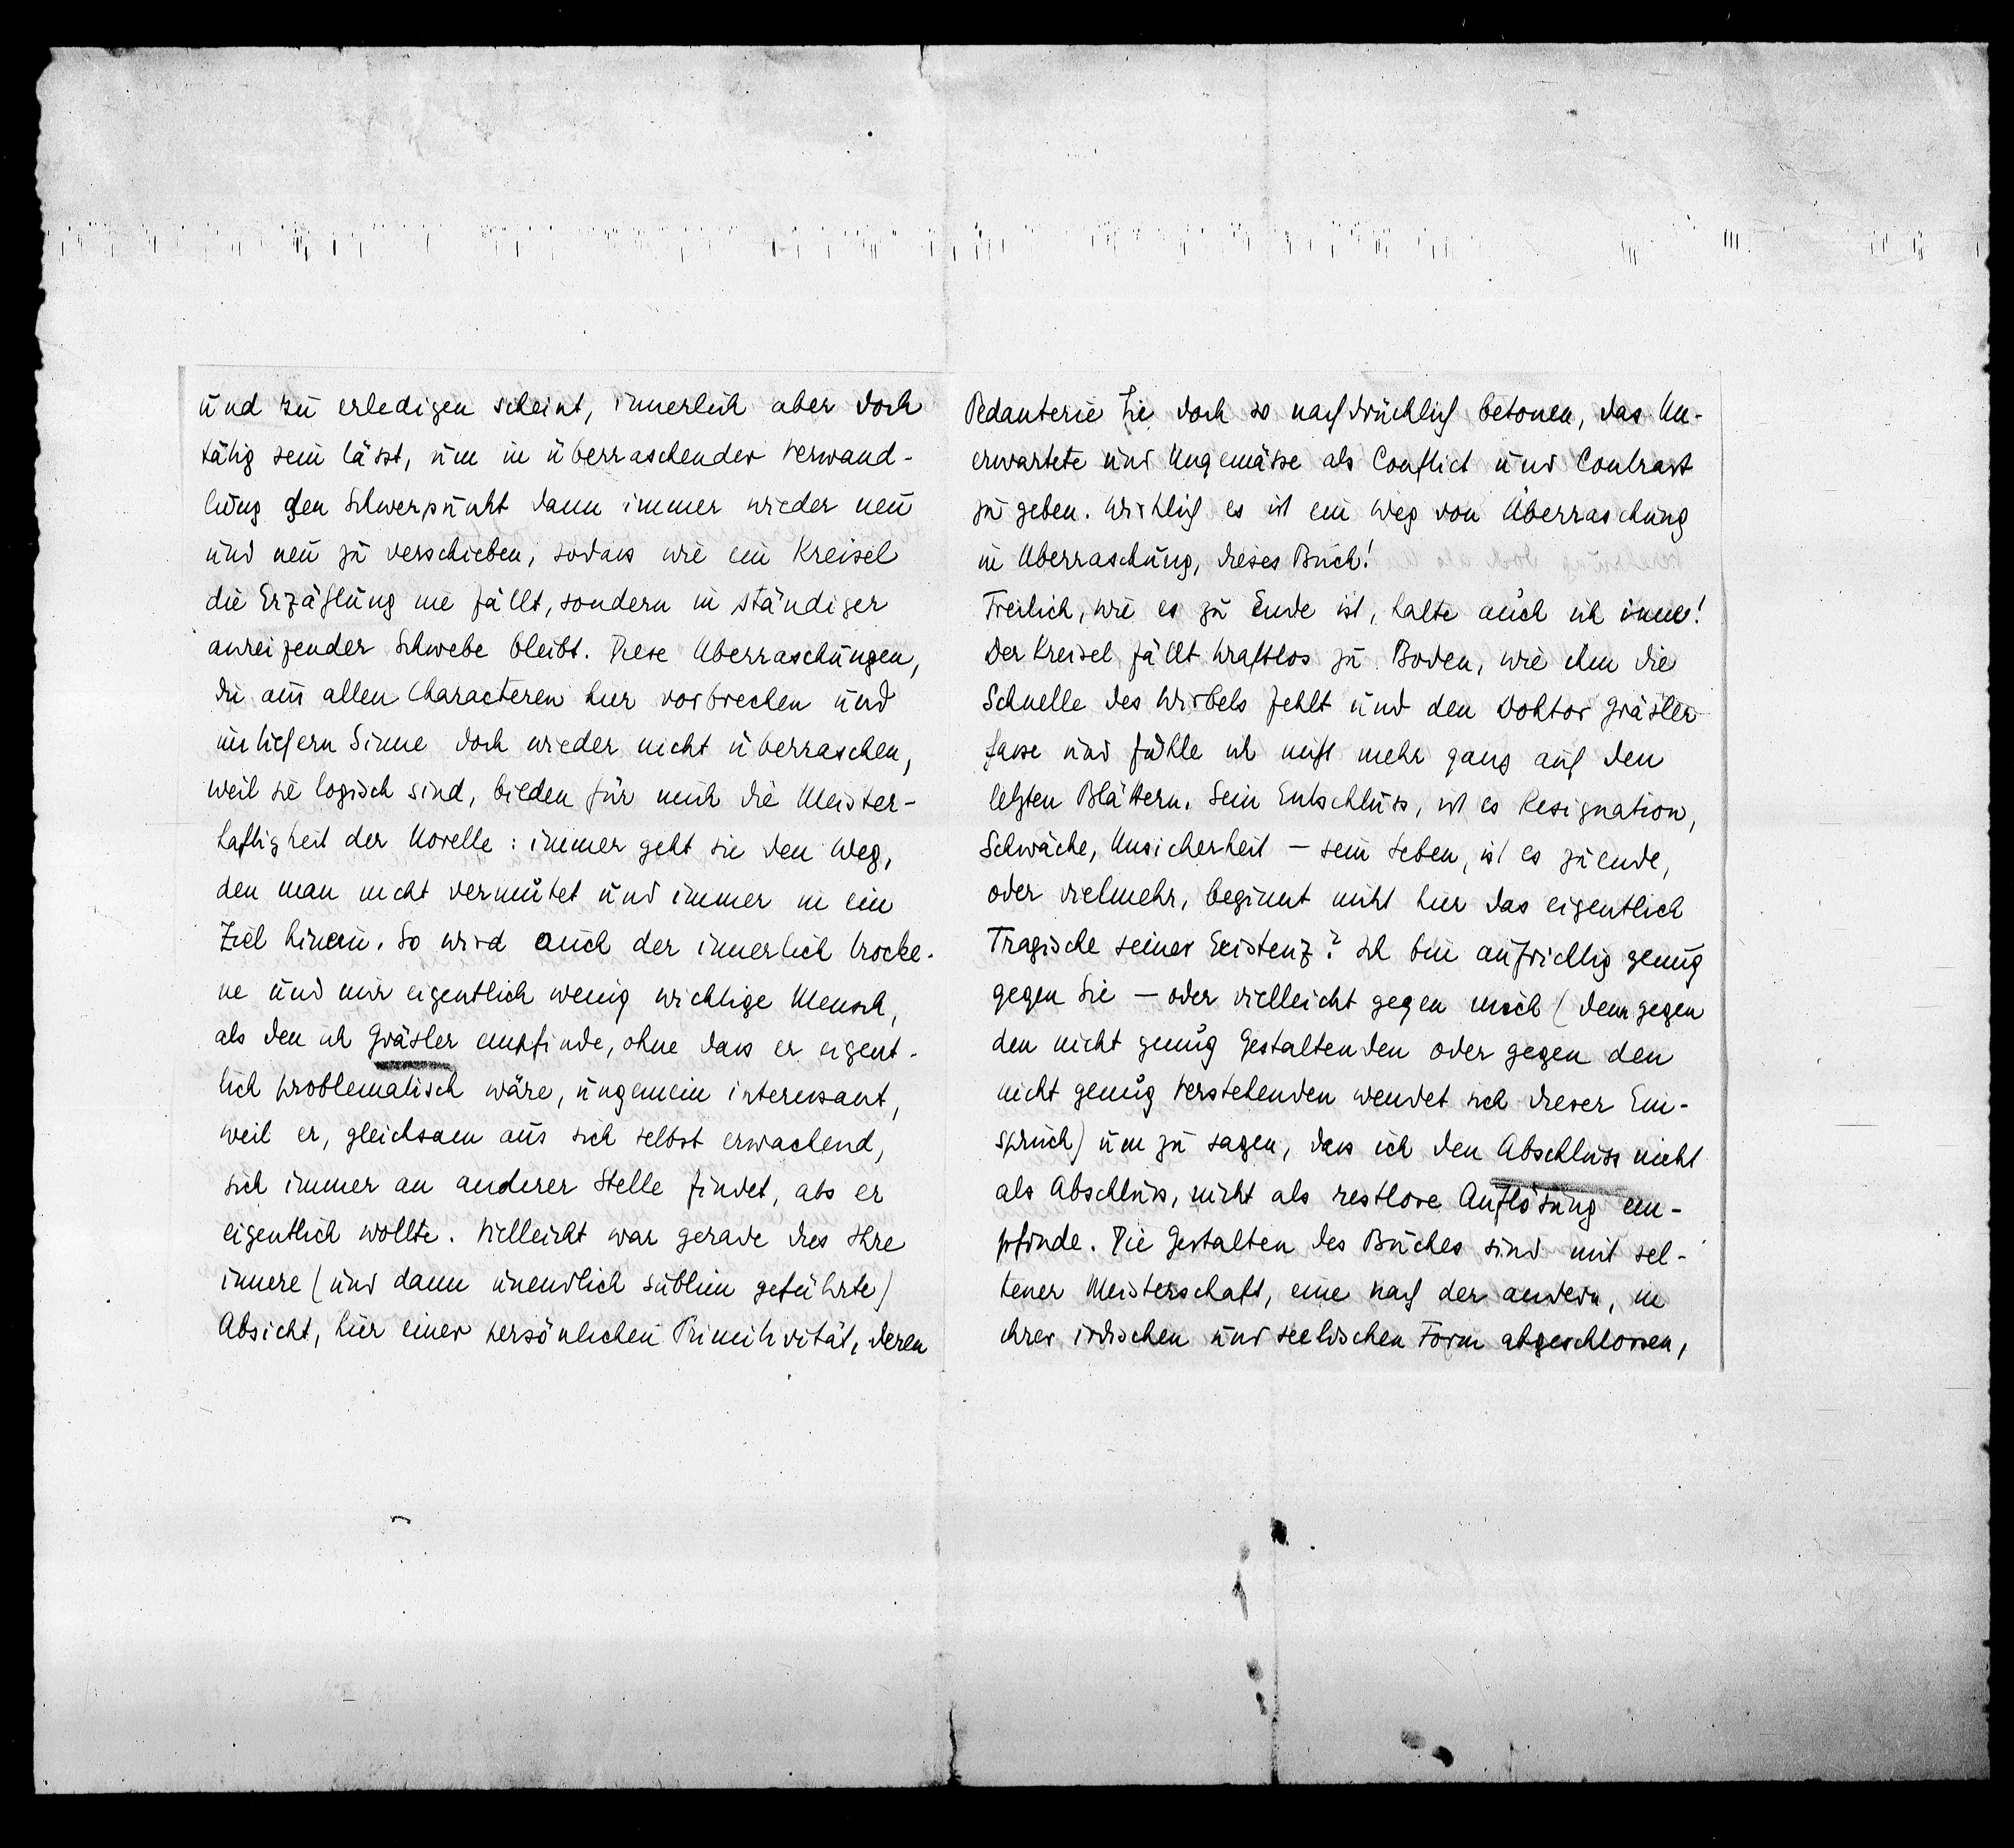 und zu erledigen scheint, innerlich aber doch
tätig sein lässt, um in überraschender Verwand-
lung den Schwerpunkt dann immer wieder neu
und neu zu verschieben, sodass wie ein Kreisel
die Erzählung nie fällt, sondern in ständiger
anreizender Schwebe bleibt. Diese Überraschungen,
die aus allen Characteren hier vorbrechen und
im tiefern Sinne doch wieder nicht überraschen,
weil sie logisch sind, bilden für mich die Meister-
haftigkeit der Novelle: immer geht sie den Weg,
den man nicht vermutet und immer in ein
Ziel hinein. So wird auch der innerlich trocke-
ne und mir eigentlich wenig wichtige Mensch,
als den ich Gräsler empfinde, ohne dass er eigent-
lich problematisch wäre, ungemein interessant,
weil er, gleichsam aus sich selbst erwachend,
sich immer an anderer Stelle findet, als er
eigentlich wollte. Vielleicht war gerade dies Ihre
innere (und dann unendlich sublim geführte)
Absicht, hier einer persönlichen Primitivität, deren
Pedanterie Sie doch so nachdrücklich betonen, das Un-
erwartete und Ungemässe als Conflict und Contrast
zu geben. Wirklich es ist ein Weg von Überraschung
in Überraschung, dieses Buch!
Freilich, wie es zu Ende ist, halte auch ich inne!
Der Kreisel fällt kraftlos zu Boden, wie ihm die
Schnelle des Wirbels fehlt und den Doktor Gräsler
fasse und fühle ich nicht mehr ganz auf den
letzten Blättern. Sein Entschluss, ist es Resignation,
Schwäche, Unsicherheit – sein Leben, ist es zuende,
oder vielmehr, beginnt nicht hier das eigentlich
Tragische seiner Existenz? Ich bin aufrichtig genug
gegen Sie – oder vielleicht gegen mich (denn gegen
den nicht genug Gestaltenden oder gegen den
nicht genug Verstehenden wendet sich dieser Ein-
spruch) um zu sagen, dass ich den Abschluss nicht
als Abschluss, nicht als restlose Auflösung em-
pfinde. Die Gestalten des Buches sind mit sel-
tener Meisterschaft, eine nach der andern, in
ihrer irdischen und seelischen Form abgeschlossen,